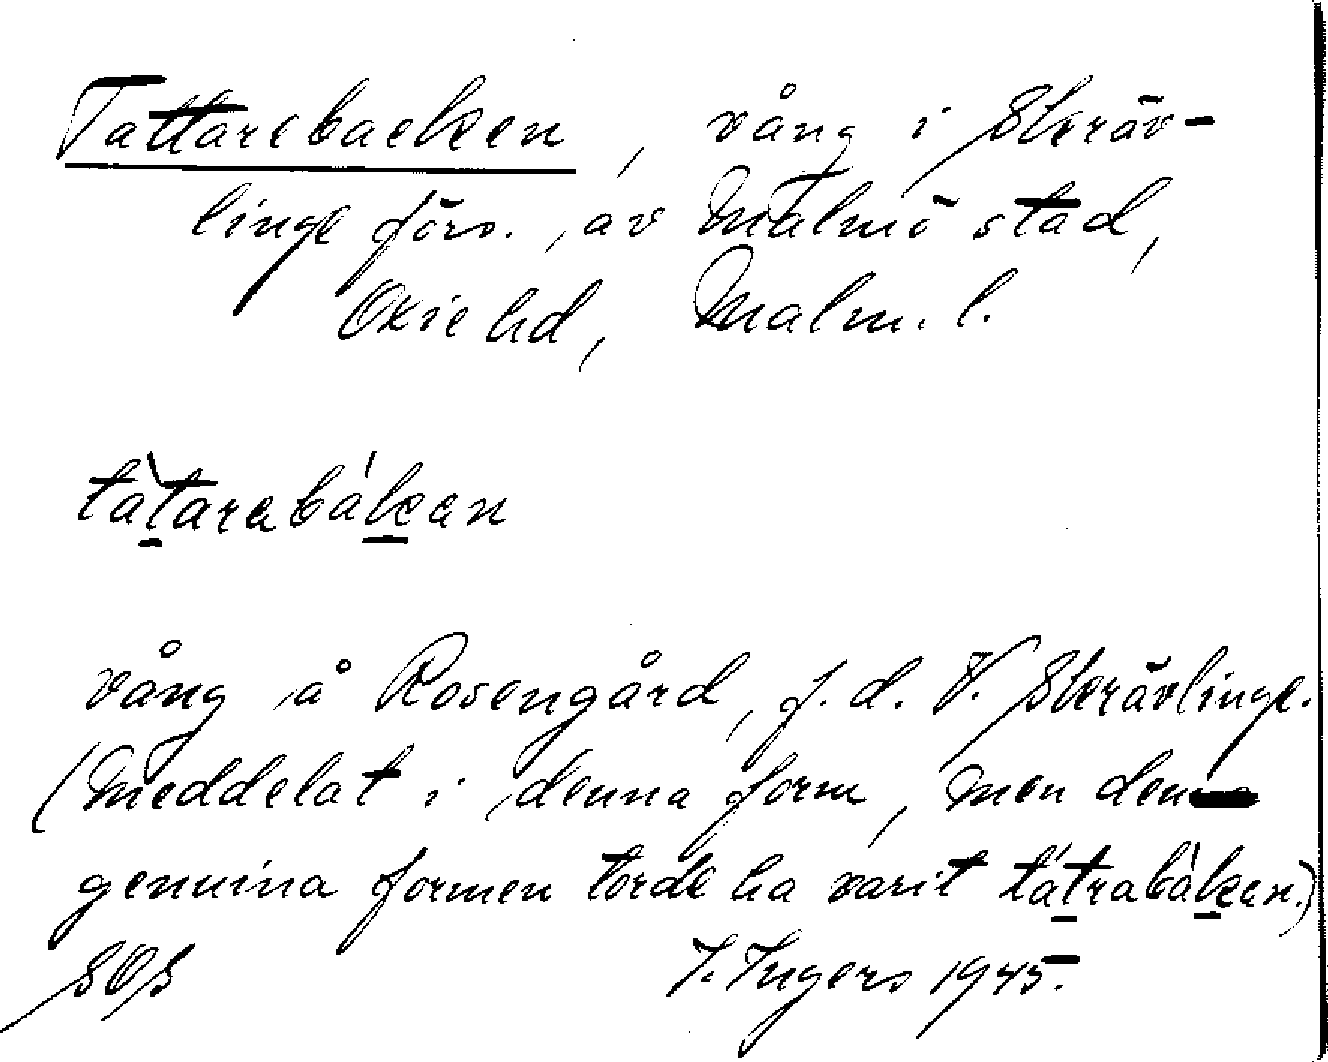 Tattarebacken, vång i Skräv-
linge förs., av Malmö stad,
Oxie hd, Malm. l.
tàtarabákan
vång å Rosengård, f.d. V. Skrävlinge.
(Meddelat i denna form, men den
genuina formen torde ha varit tátrabàkan.)
SOS I. Ingers 1945.